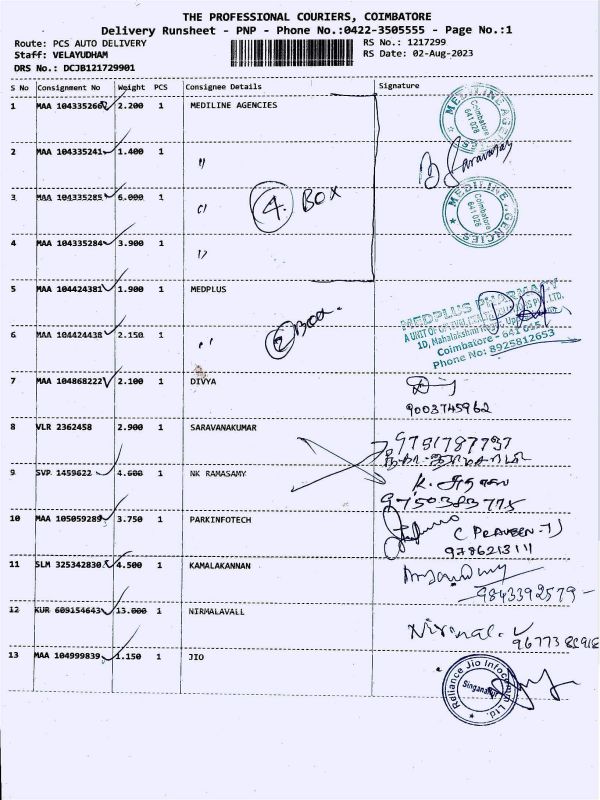 THE PROFESSIONAL COURIERS, COIMBATORE
Delivery Runsheet - PNP - Phone No.:0422-3505555 - Page No.:1
Route: PCS AUTO DELIVERY
Staff: VELAYUDHAM
DRS No.: DCJB121729901
RS No.: 1217299
RS Date: 02-Aug-2023
S No Consignment No Weight PCS Consignee Details Signature
1 MAA 104335260 2.200 1 MEDILINE AGENCIES
MEDILINE AGENCIES Coimbatore 641 026
2 MAA 104335241 1.400 1 "
3 MAA 104335285 6.000 1 "
4. BOX
MEDILINE AGENCIES Coimbatore 641 026
4 MAA 104335284 3.900 1 "
5 MAA 104424381 1.900 1 MEDPLUS
2 Box.
MEDPLUS PHARMACY
Coimbatore - 641 055
Phone No: 8925812653
6 MAA 104424438 2.150 1 "
7 MAA 104868222 2.100 1 DIVYA
9003745962
8 VLR 2362458 2.900 1 SARAVANAKUMAR
9791787797
9 SVP 1459622 4.600 1 NK RAMASAMY
9750383775
10 MAA 105059289 3.750 1 PARKINFOTECH
C PRAVEEN
9786213111
11 SLM 325342830 4.500 1 KAMALAKANNAN
9843392579
12 KUR 609154643 13.000 1 NIRMALAVALL
Nirmala. V
13 MAA 104999839 1.150 1 JIO
Reliance Jio Infocomm Ltd.